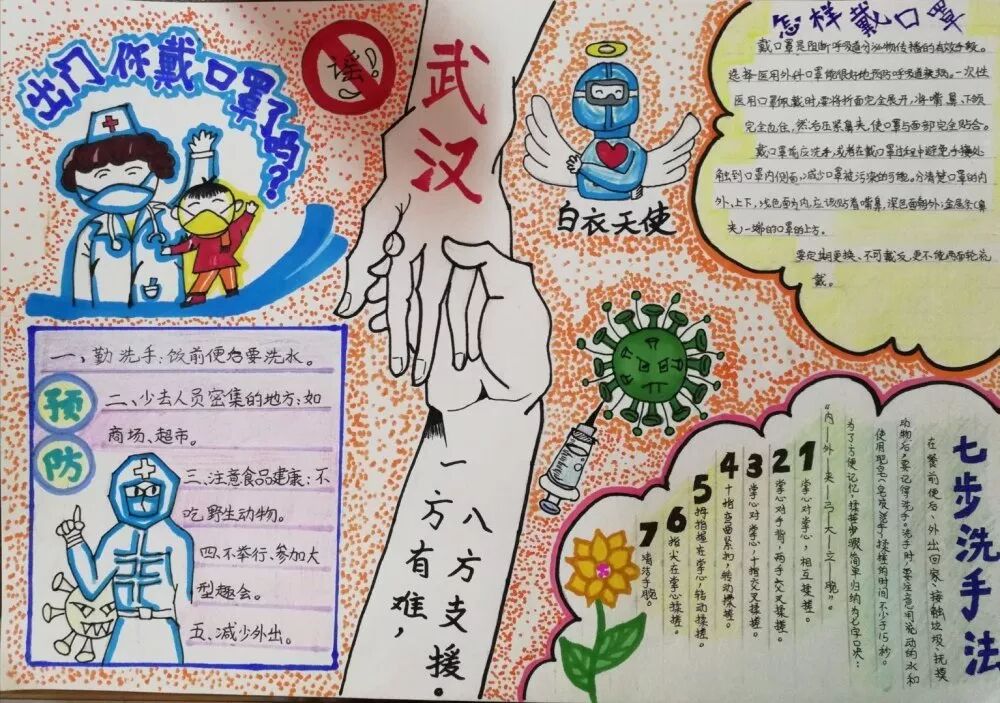 出门你戴口罩了吗?
谣!
武汉
一方有难，
八方支援。
白衣天使
预防
一、勤洗手：饭前便后要洗水。
二、少去人员密集的地方：如
商场、超市。
三、注意食品健康：不
吃野生动物。
四、不举行、参加大
型趣会。
五、减少外出。
怎样戴口罩
戴口罩是阻断呼吸道分泌物传播的有效手段。
选择医用外科口罩能很好地预防呼吸道疾病。一次性
医用口罩佩戴时，要将折面完全展开，将嘴、鼻、下颌
完全包住，然后压紧鼻夹，使口罩与面部完全贴合。
戴口罩前应洗手，或者在戴口罩过程中避免手接处
触到口罩内侧面，减少口罩被污染的可能。分清楚口罩的内
外、上下，浅色面为内，应该贴着嘴鼻，深色面朝外；金属条（鼻
夹）一端的口罩的上方。
要定期更换、不可戴反，更不能两面轮流
戴。
七步洗手法
在餐前便后、外出回家、接触垃圾、抚摸
动物后，要记得洗手。洗手时，要注意用流动的水和
使用肥皂（皂液洗手），揉搓的时间不少于15秒。
为了方便记忆，揉搓步骤简要归纳为七字口诀：
“内—外—夹—弓—大—立—腕”。
1掌心对掌心，相互揉搓。
2掌心对手背，两手交叉揉搓。
3掌心对掌心，十指交叉揉搓。
4十指弯曲紧扣，转动揉搓。
5拇指握在掌心，转动揉搓。
6指尖在掌心揉搓。
7清洁手腕。